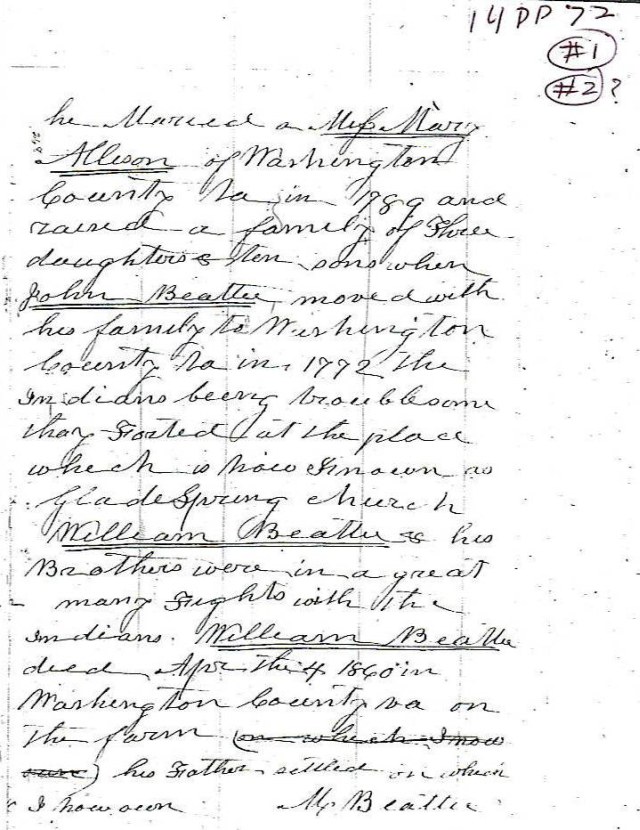 14 DD 72
#1
#2 ?
he Maried a Miss Mary
Allison of Washington
County Va in 1789 and
raised a family of Three
daughters & ten sons when
John Beattie moved with
his family to Washington
County Va in 1772 the
Indians being troublesome
thay Forted at the place
which is now Known as
Glade Spring church
William Beattie & his
Brothers were in a great
many Fights with the
Indians. William Beattie
died Apr the 4 1860 in
Washington County va on
the farm (on which I now
) his Father settled on which
I now own M Beattie